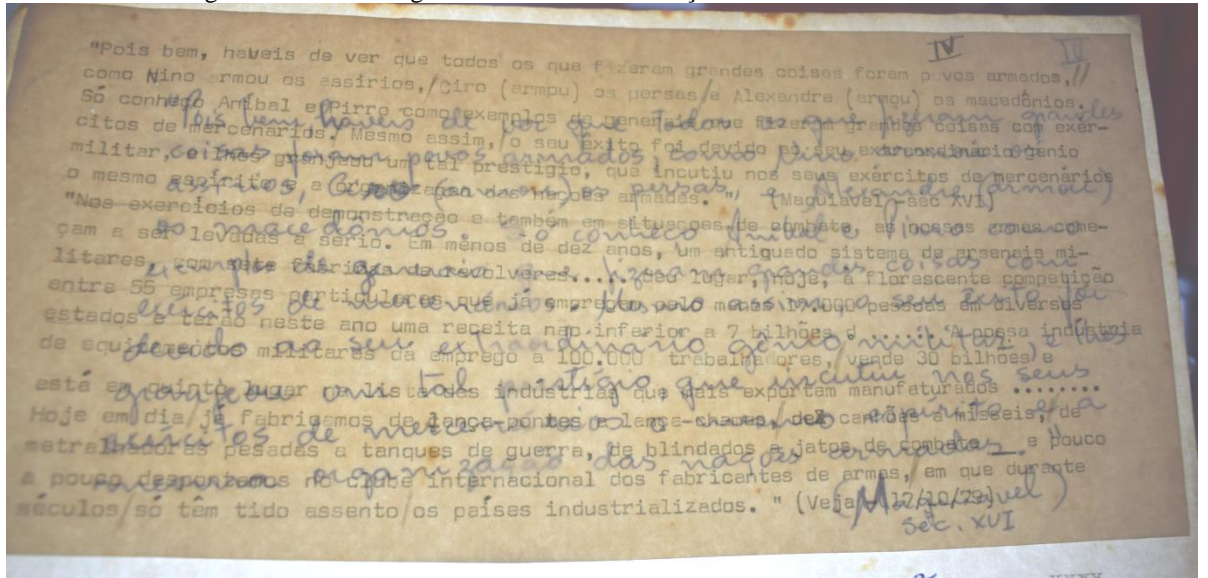 IV IV
"Pois bem, haveis de ver que todos os que fizeram grandes coisas foram povos armados,//
como Nino armou os assírios,/Ciro (armou) os persas/e Alexandre (armou) os macedônios.
Só conheço Aníbal e Pirro como exemplos de generais que fizeram grandes coisas com exér-
citos de mercenários. Mesmo assim,/o seu êxito foi devido ao seu extraordinário gênio
militar, e lhes granjeou um tal prestígio, que incutiu nos seus exércitos de mercenários
o mesmo espírito e a organização das nações armadas. "/ (Maquiavel-sec XVI)
"Nos exercícios de demonstração e também em situaçoes de combate, as nossas armas come-
çam a ser levadas a sério. Em menos de dez anos, um antiquado sistema de arsenais mi-
litares, com sete fábricas de revolveres....deu lugar,/hoje, à florescente competição
entre 55 empresas particulares que já empregam pelo menos 17.000 pessoas em diversos
estados e terão neste ano uma receita nao inferior a 7 bilhões d ...... "A nossa indústria
de equipamentos militares dá emprego a 100.000 trabalhadores,/vende 30 bilhões e
está em quinto lugar na lista das indústrias que mais exportam manufaturados ........
Hoje em dia/já fabricamos de lança-pontes a lança-chamas, de canhões a mísseis,/de
metralhadoras pesadas a tanques de guerra, de blindados a jatos de combate. e pouco
a pouco despontamos no clube internacional dos fabricantes de armas, em que durante
séculos/só têm tido assento/os países industrializados. " (Veja, 17/10/79)
"Pois bem haveis de ver que todos os que fizeram grandes
coisas foram povos armados, como Nino armou os
assírios, Ciro (armou) os persas, e Alexandre (armou)
os macedônios. Só conheço Anibal e Pirro como
exemplo de generais q. fizeram grandes coisas com
exércitos de mercenários. Mesmo assim o seu êxito foi
devido ao seu extraordinário gênio militar, e lhes
granjeou um tal prestígio que incutiu nos seus
exércitos de mercenários o mesmo espírito e a
mesma organização das nações armadas.
(Maquiavel)
Séc. XVI